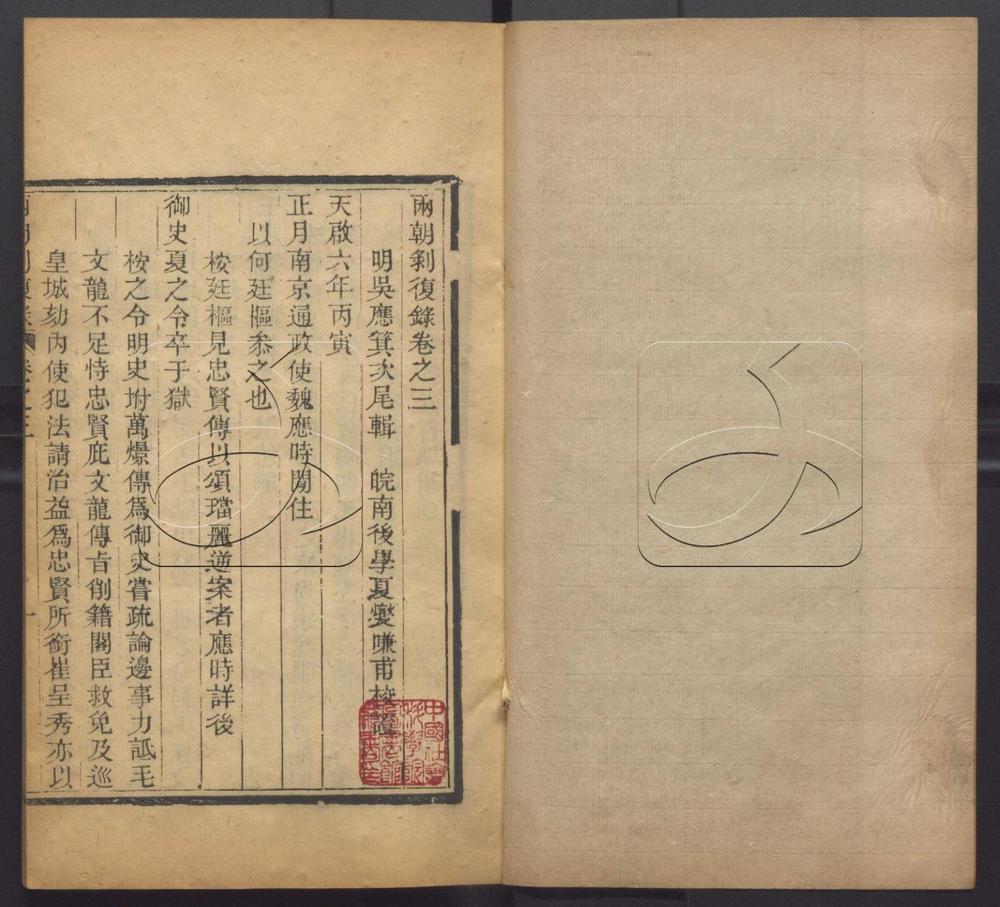 兩朝剝復錄卷之三
明吳應箕次尾輯 皖南後學夏燮嗛甫校證
天啟六年丙寅
正月南京通政使魏應時閒住
以何廷樞叅之也
桉廷樞見忠賢傳以頌璫麗逆案者應時詳後
御史夏之令卒于獄
桉之令明史坿萬燝傳爲御史嘗疏論邊事力詆毛
文龍不足恃忠賢庇文龍傳旨削籍閣臣救免及巡
皇城劾內使犯法請治益爲忠賢所銜崔呈秀亦以
卷之三 一